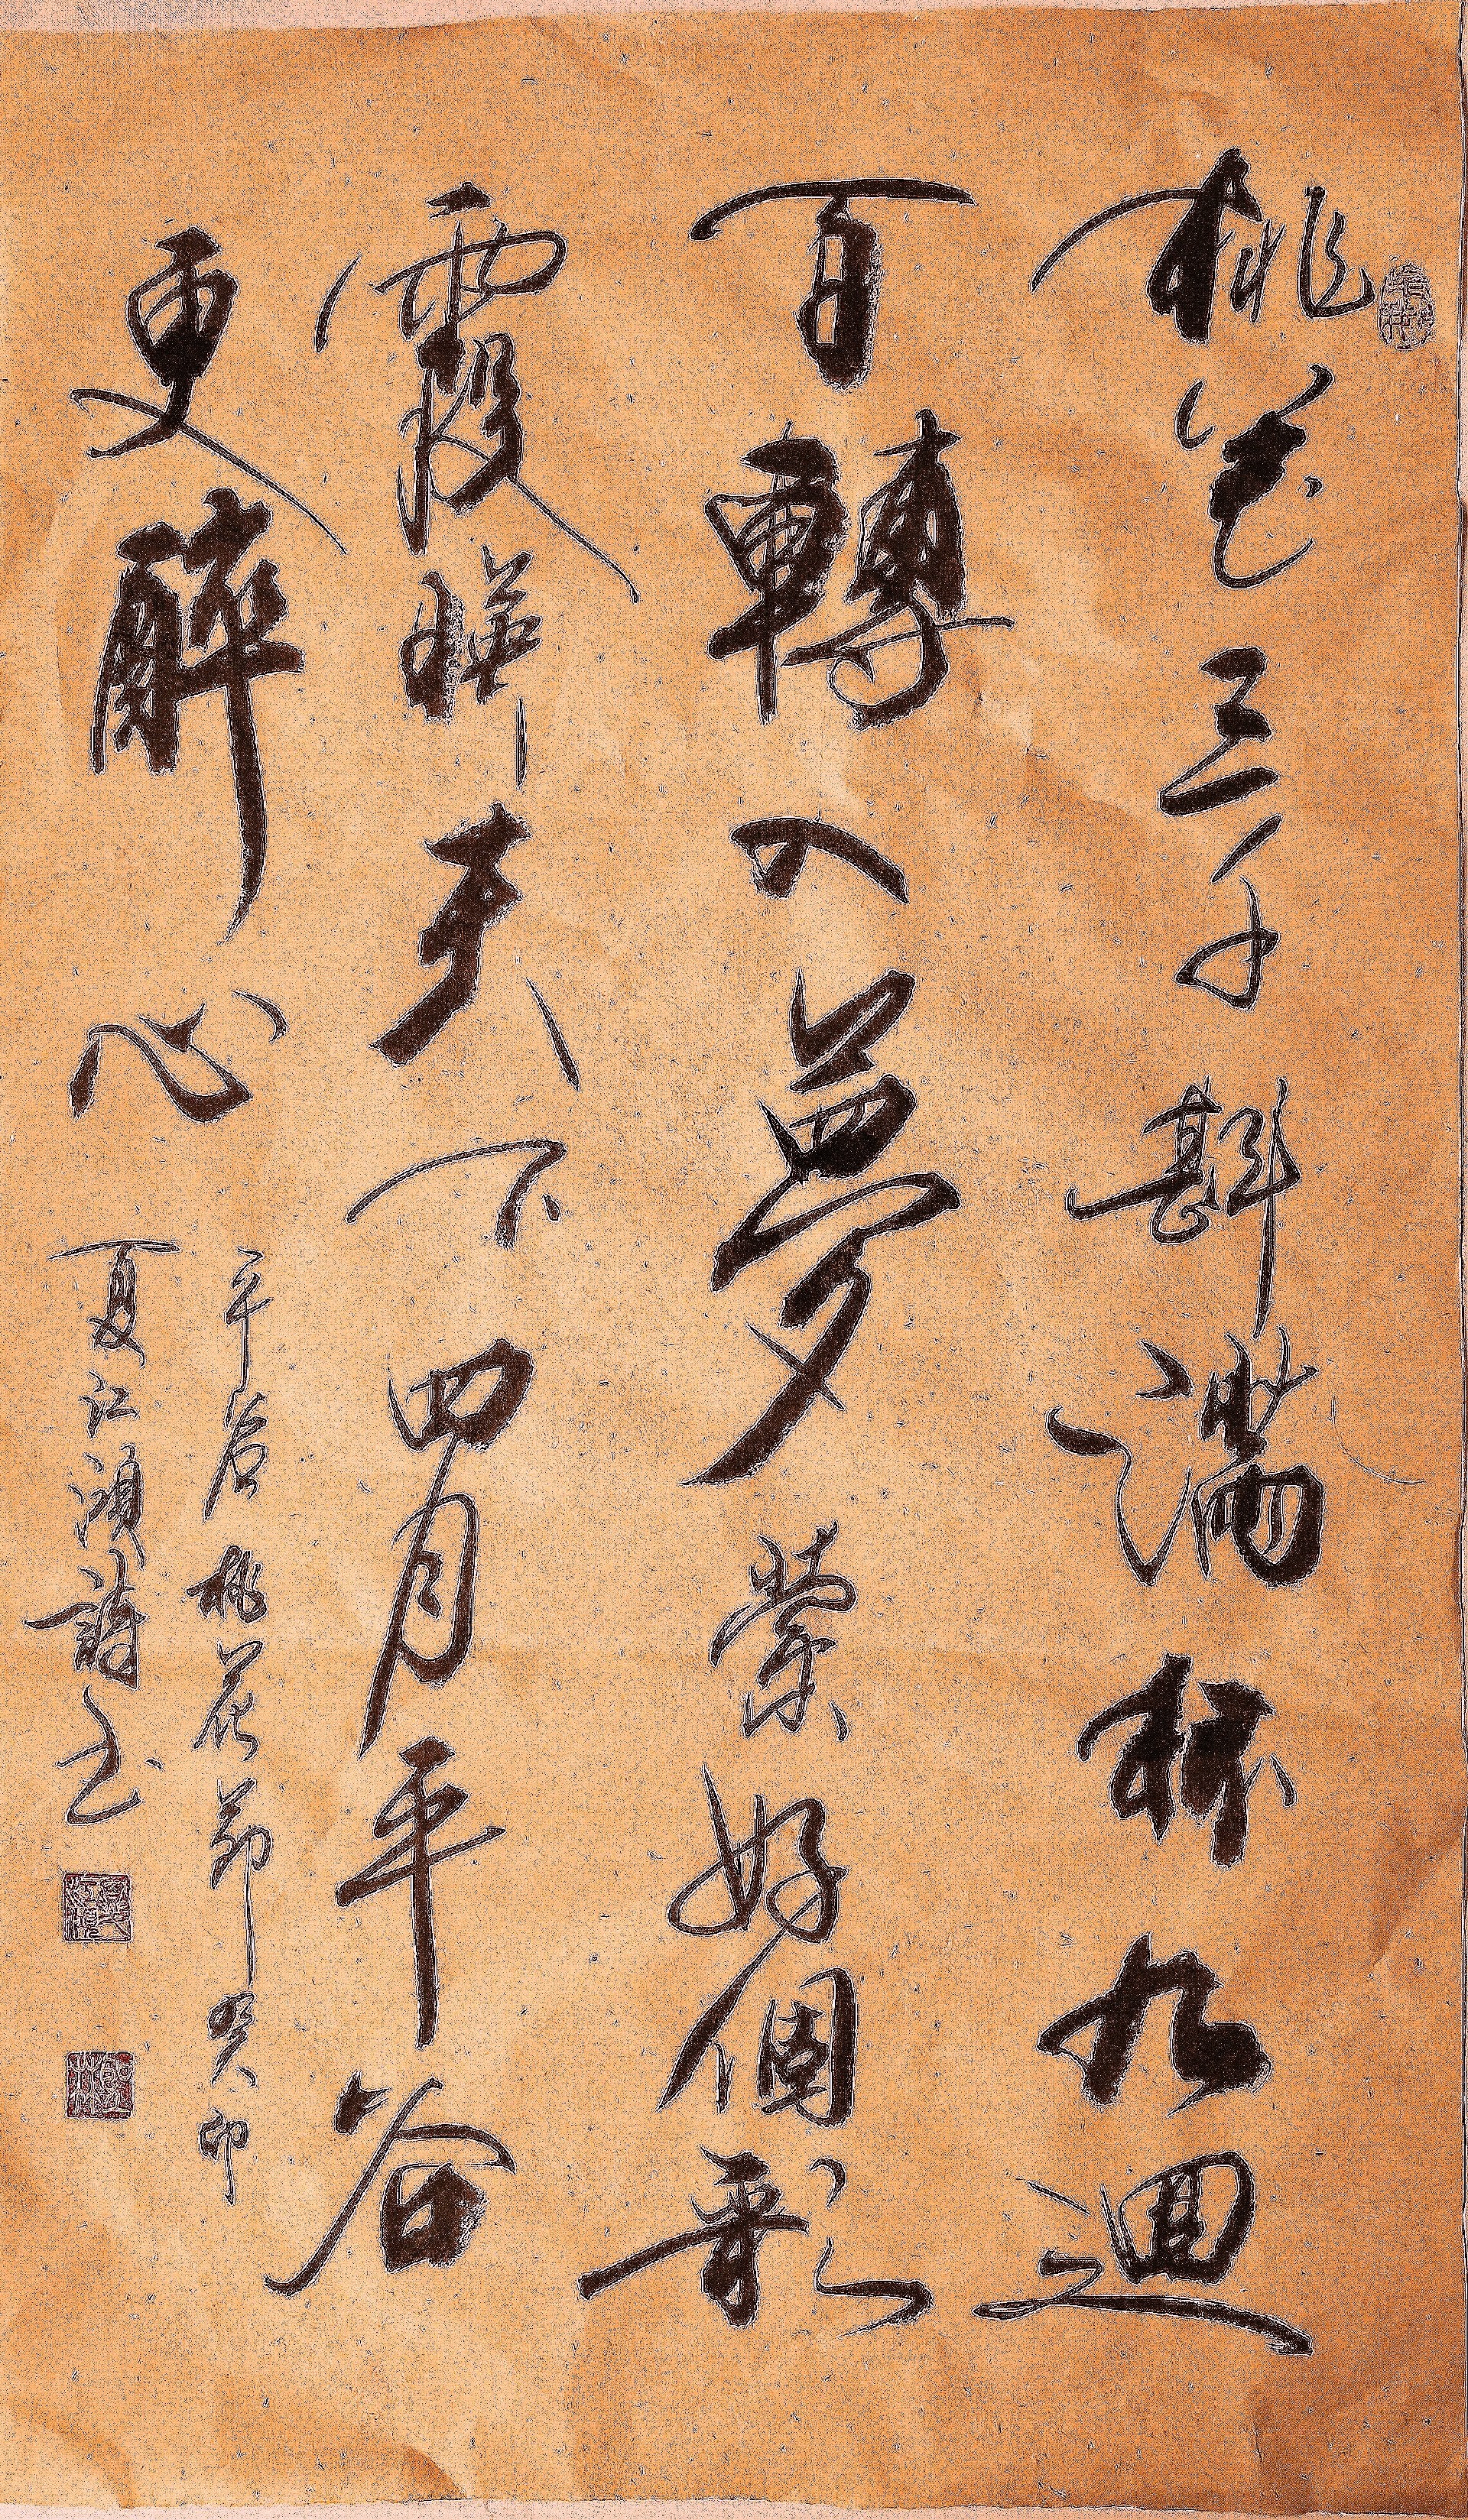 桃花三千斟滿杯九迴
百轉入夢縈好個彩
霞映天下四月平谷
更醉心
平谷桃花節癸卯
夏江詩书